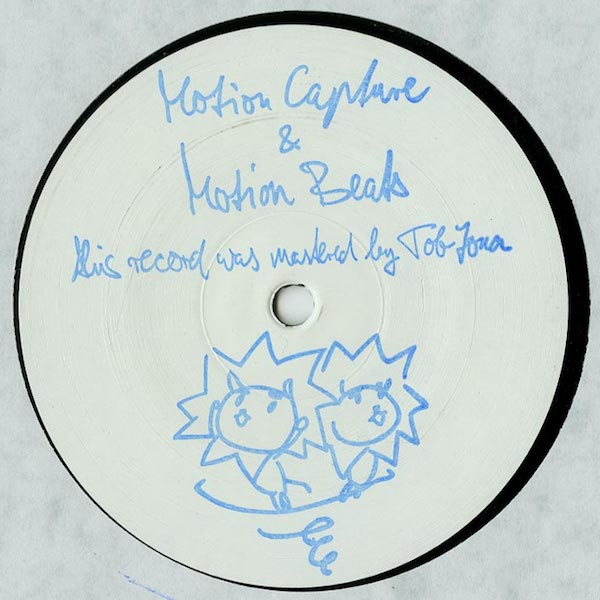 Motion Capture
&
Motion Beats
this record was mastered by Tob Jona